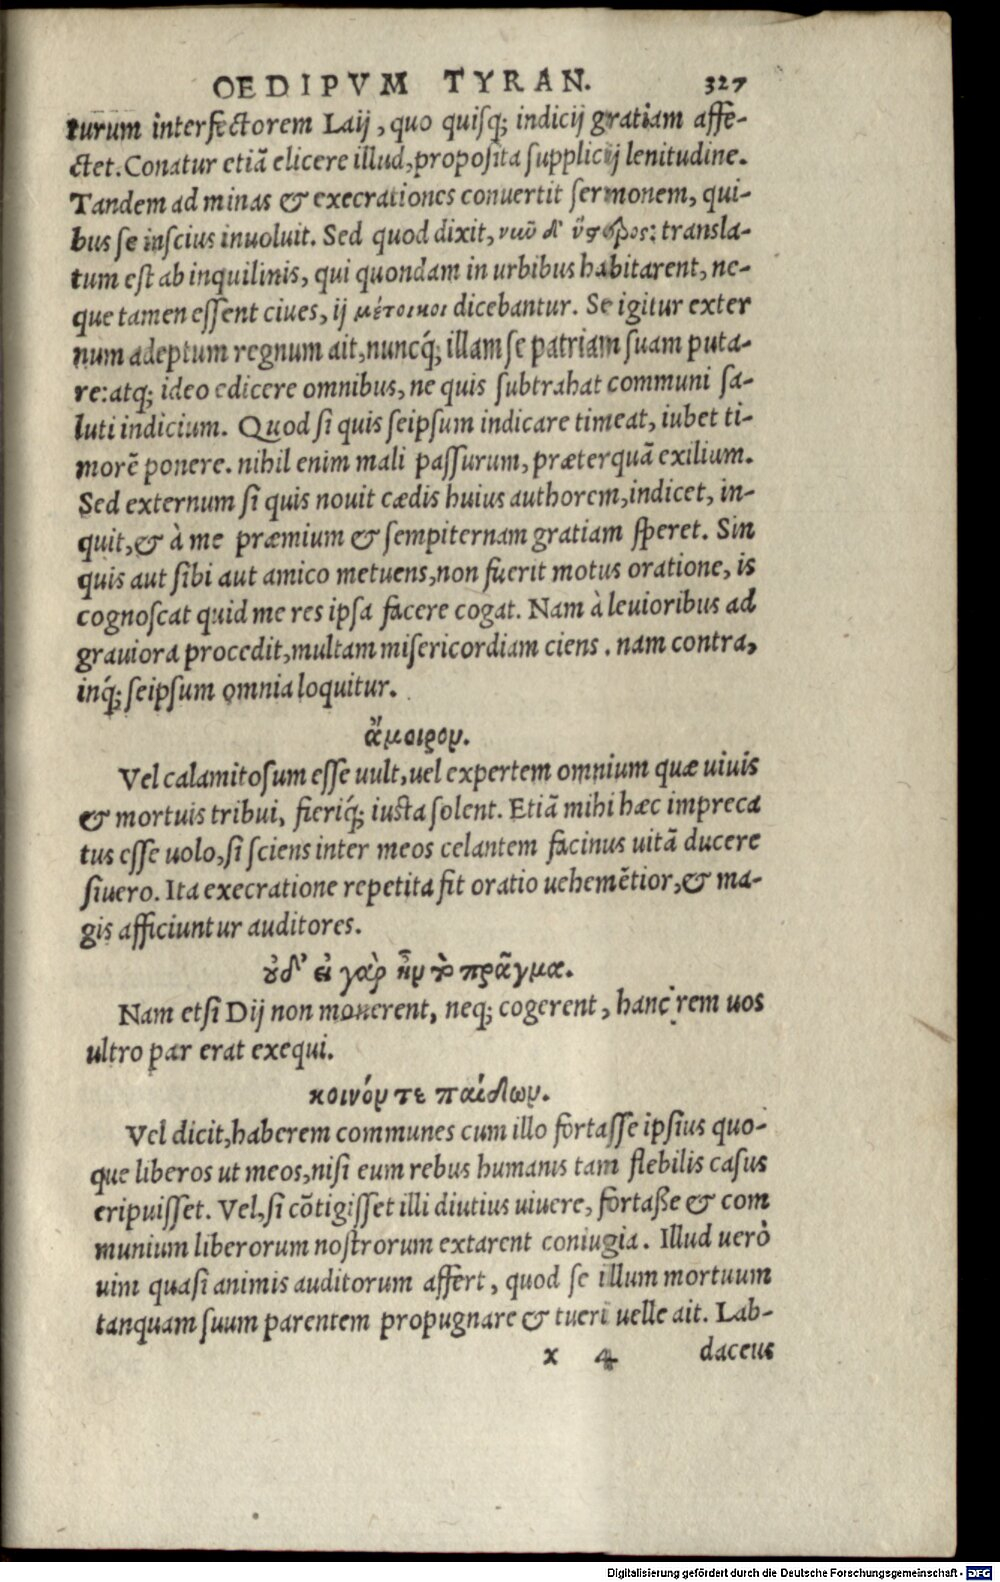 OEDIPVM TYRAN. 327
turum interfectorem Laij, quo quisq; indicij gratiam affe-
ctet. Conatur etiā elicere illud, proposita supplicij lenitudine.
Tandem ad minas & execrationes conuertit sermonem, qui-
bus se inscius inuoluit. Sed quod dixit, νυῦ δ' ὕστερος: transla-
tum est ab inquilinis, qui quondam in urbibus habitarent, ne-
que tamen essent ciues, ij μέτοικοι dicebantur. Se igitur exter
num adeptum regnum ait, nuncq́; illam se patriam suam puta-
re: atq; ideo edicere omnibus, ne quis subtrahat communi sa-
luti indicium. Quod si quis seipsum indicare timeat, iubet ti-
morē ponere. nihil enim mali passurum, præterquā exilium.
Sed externum si quis nouit cædis huius authorem, indicet, in-
quit, & à me præmium & sempiternam gratiam speret. Sin
quis aut sibi aut amico metuens, non fuerit motus oratione, is
cognoscat quid me res ipsa facere cogat. Nam à leuioribus ad
grauiora procedit, multam misericordiam ciens. nam contra,
inq́; seipsum omnia loquitur.
ἄμοιρον.
Vel calamitosum esse uult, uel expertem omnium quæ uiuis
& mortuis tribui, fieriq́; iusta solent. Etiā mihi hæc impreca
tus esse uolo, si sciens inter meos celantem facinus uitā ducere
siuero. Ita execratione repetita fit oratio uehemētior, & ma-
gis afficiuntur auditores.
οὐδ' εἰ γὰρ ἦν τὸ πρᾶγμα.
Nam etsi Dij non monerent, neq; cogerent, hanc rem uos
ultro par erat exequi.
κοινόν τε παίδων.
Vel dicit, haberem communes cum illo fortasse ipsius quo-
que liberos ut meos, nisi eum rebus humanis tam flebilis casus
eripuisset. Vel, si cōtigisset illi diutius uiuere, fortaße & com
munium liberorum nostrorum extarent coniugia. Illud uerò
uim quasi animis auditorum affert, quod se illum mortuum
tanquam suum parentem propugnare & tueri uelle ait. Lab-
x 4 daceus
Digitalisierung gefördert durch die Deutsche Forschungsgemeinschaft - DFG